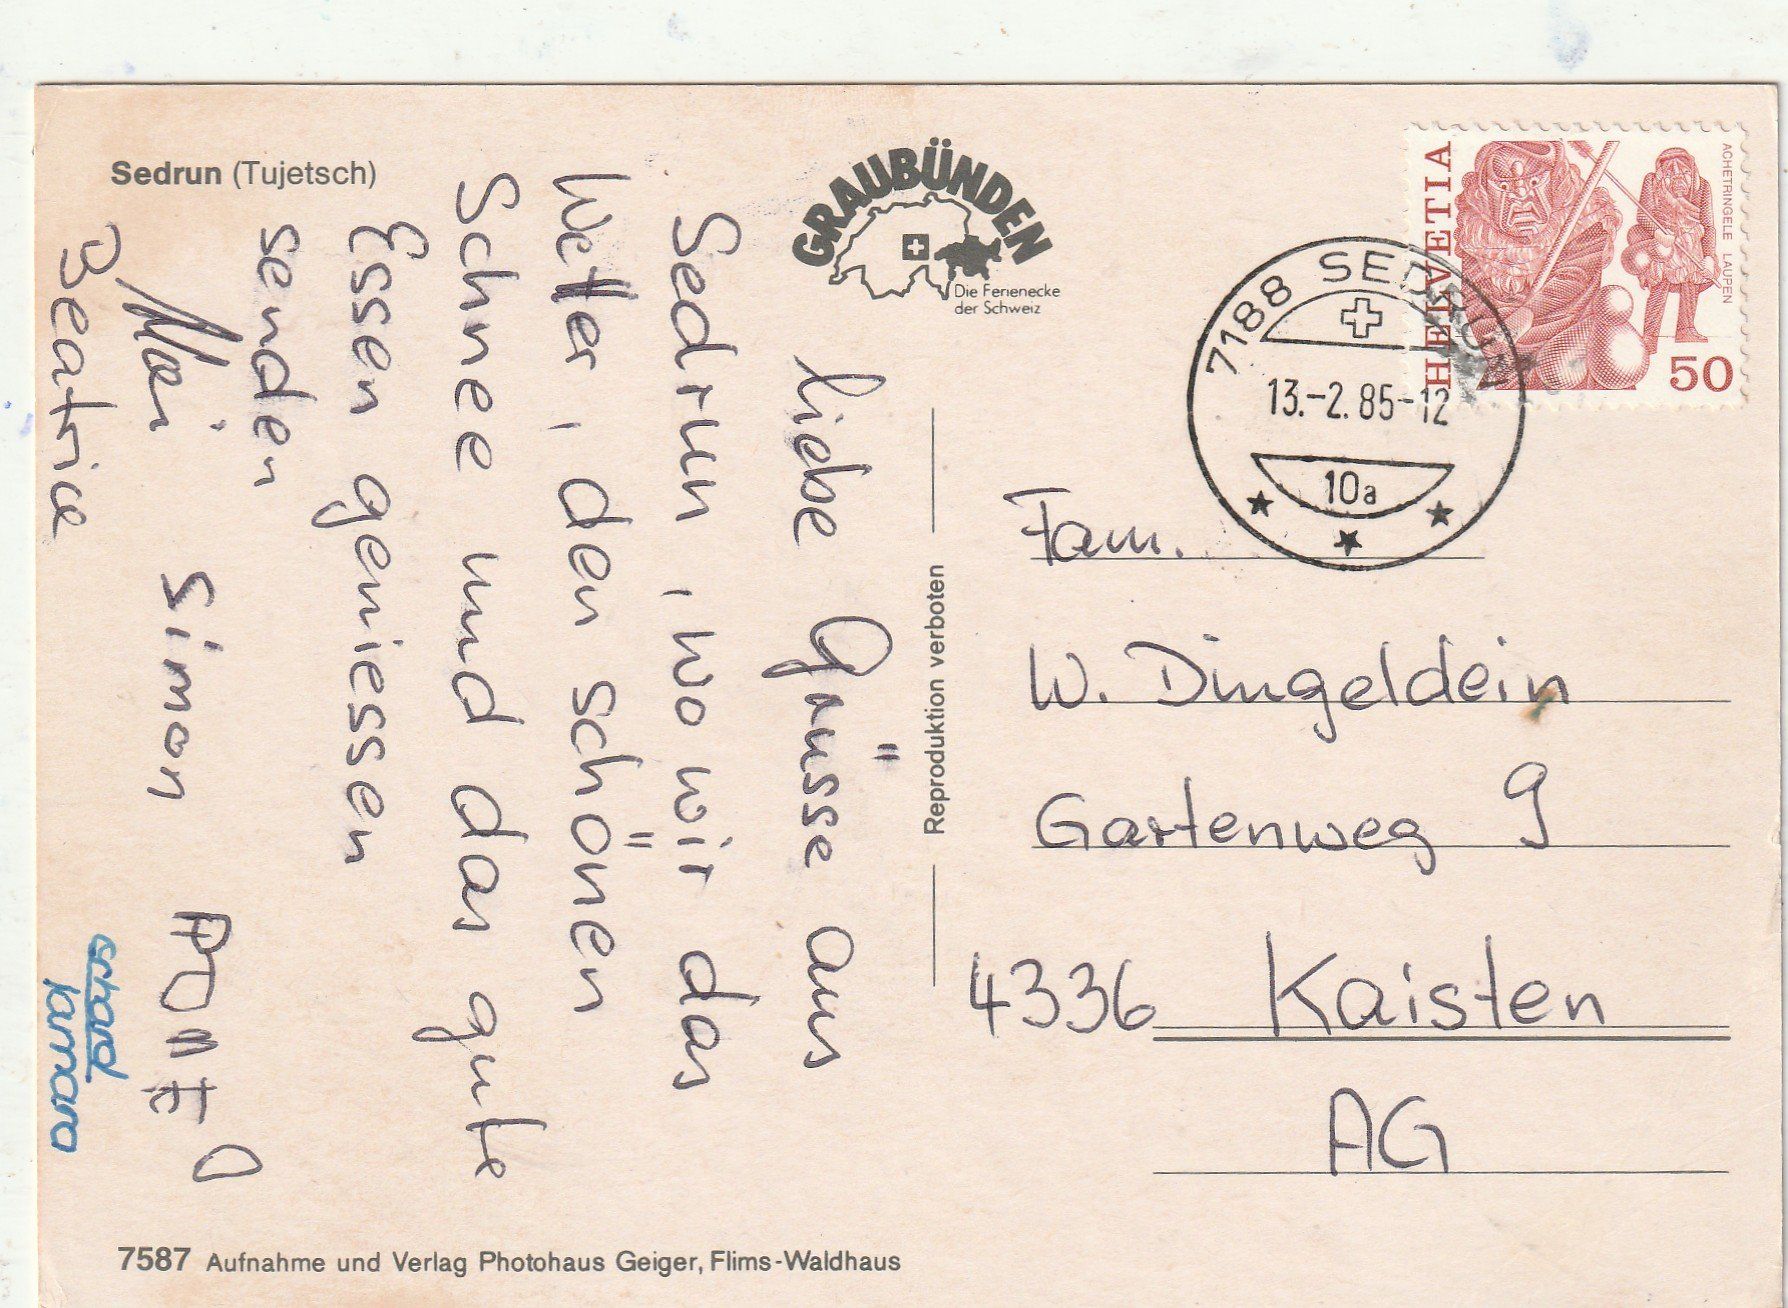 Sedrun (Tujetsch)
GRAUBÜNDEN
Die Ferienecke
der Schweiz
HELVETIA
ACHETRINGELE LAUPEN
50
7188 SEDRUN
13.-2.85-12
10a
liebe Grüsse aus
Sedrun, wo wir das
Wetter, den schönen
Schnee und das gute
Essen geniessen
senden
Simon
Beatrice
Tamara
Reproduktion verboten
Fam.
W. Dingeldein
Gartenweg 9
4336 Kaisten
AG
7587 Aufnahme und Verlag Photohaus Geiger, Flims-Waldhaus